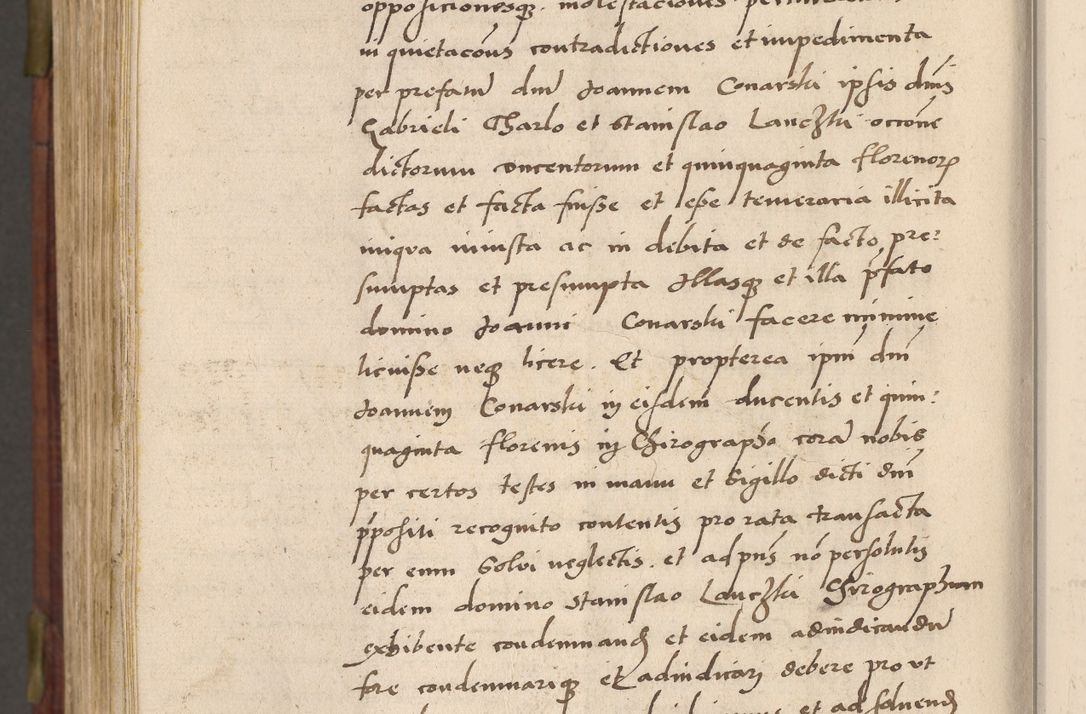 opposicionesque molestaciones
inquietacōns contradictiones et impedimenta
per prefatū dnū Joannem Conarski ipsis dnīs
Gabrieli Tharlo et Stanislao Lanczki occōne
dictorum ducentorum et quinquaginta florenorꝝ
factas et facta fuisse et esse temeraria illicita
iniqva iniusta ac in debita et de facto pre:
sumptas et presumpta Illasqꝫ et illa pꝛfato
domino Joanni Conarski facere minime
licuisse neqꝫ licere. Et propterea ipm̄ dnm̄
Joannem Conarski in eisdem ducentis et quin:
quaginta florenis in Chirographo corā nobis
per certos testes in manu et Sigillo dicti dnī
ppositi recognito contentis pro rata transacta
per eum Solvi neglectis. et ad pn̄s nō persolutis
eidem domino Stanislao Lanczki Chirographum
exhibente condemnand et eidem adiudicandū
fore condemnariqꝫ et adiudicari debere pro ut
et ad solvend